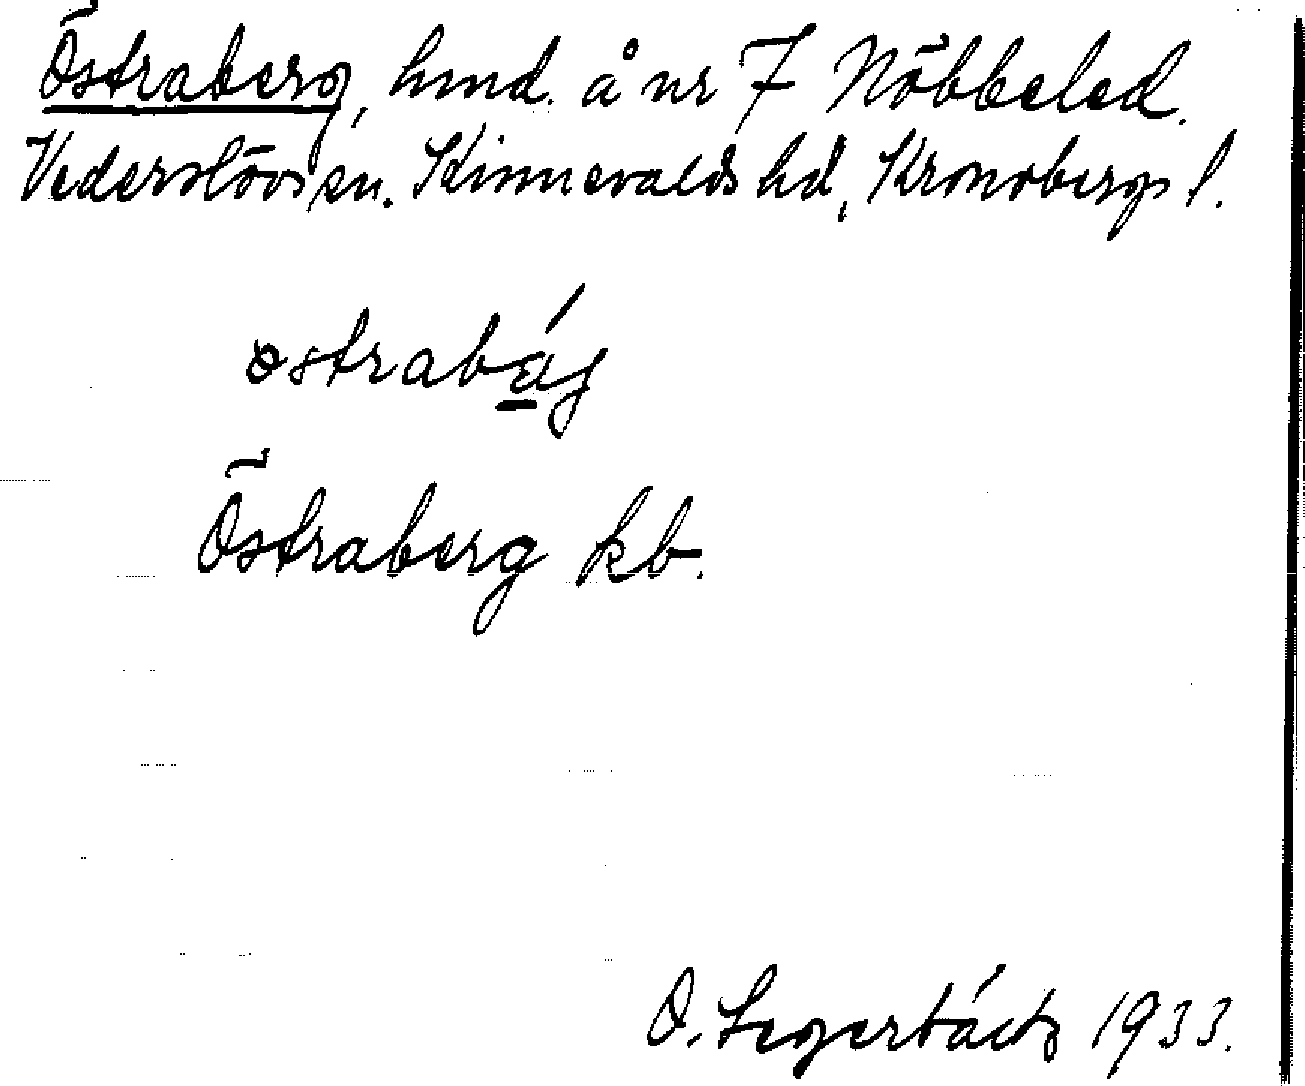 Östraberg, hmd. å nr 7 Nöbbeled.
Vederslövs sn. Kinnevalds hd, Kronobergs l.
östrabáj
Östraberg kb.
O. Segerbäck 1933.